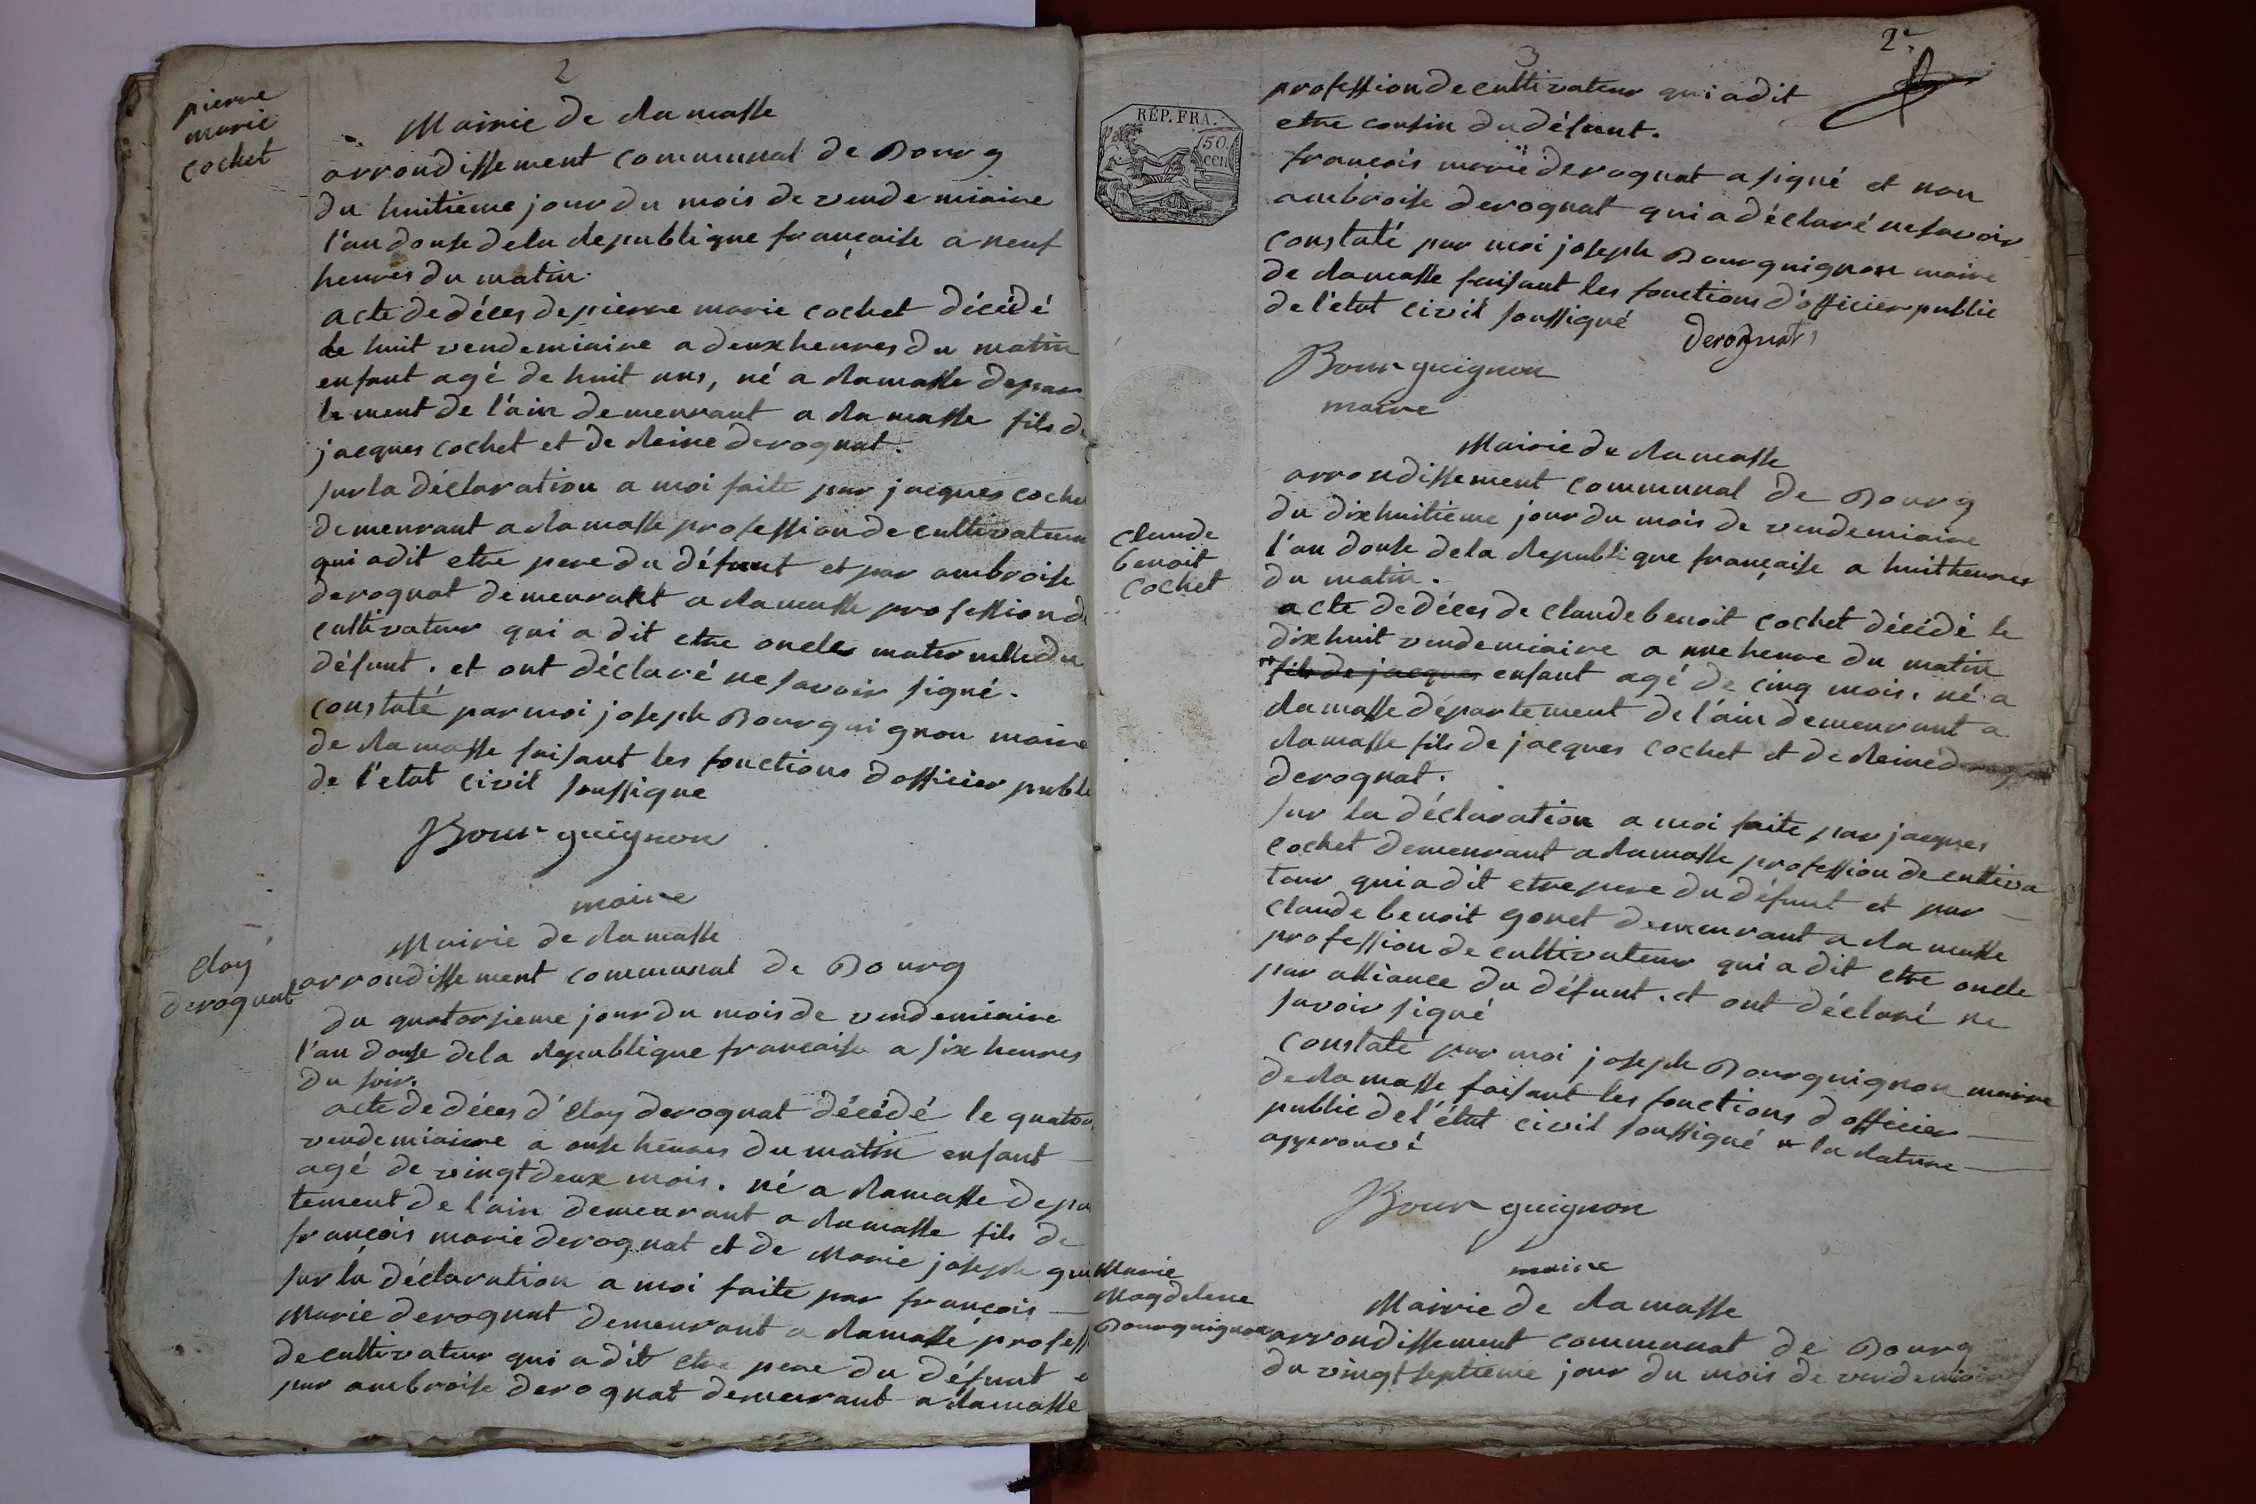 2
pierre
marie
cochet
Mairie de Ramasse
arrondissement communal de Bourg
du huitieme jour du mois de vendemiaire
l'an douse de la Republique française a neuf
heures du matin.
acte de déces de pierre marie cochet décédé
le huit vendemiaire a deux heures du matin
enfant agé de huit ans, né a Ramasse depar
tement de l'ain demeurant a Ramasse fils d
jacques cochet et de Reine derognat.
sur la déclaration a moi faite par jacques coche
demeurant a Ramasse profession de cultivateur
qui a dit etre pere du défunt et par ambroise
derognat demeurant a Ramasse profession d
cultivateur qui a dit etre oncle maternelle du
défunt. et ont déclaré ne savoir signé.
constaté par moi joseph Bourguignon maire
de Ramasse faisant les fonctions d'officier publi
de l'etat civil soussigne
Bourguignon
maire
Eloy
derognat
Mairie de Ramasse
arrondissement communal de Bourg
du quatorsieme jour du mois de vendemiaire
l'an douse de la Republique francaise a six heures
du soir.
acte de déces d'Eloy derognat décédé le quator
vendemiaire a onse heures du matin enfant
agé de vingt deux mois. né a Ramasse depa
tement de l'ain demeurant a Ramasse fils de
françois marie derognat et de Marie joseph gu
sur la déclaration a moi faite par françois
Marie derognat demeurant a Ramasse profess
de cultivateur qui a dit etre pere du défunt e
par ambroise derognat demeurant a Ramasse
3
2e
RÉP. FRA.
50
CEN
profession de cultivateur qui a dit
etre cousin du défunt.
françois marie derognat a signé et non
ambroise derognat qui a déclaré ne savoir
constaté par moi joseph Bourguignon maire
de Ramasse faisant les fonctions d'officier public
de l'etat civil soussigné derognat
Bourguignon
maire
Claude
benoit
Cochet
Mairie de Ramasse
arrondissement communal de Bourg
du dixhuitieme jour du mois de vendemiaire
l'an douse de la Republique française a huit heures
du matin.
acte de déces de Claude benoit cochet décédé le
dixhuit vendemiaire a une heure du matin
fils de jacques enfant agé de cinq mois. né a
Ramasse département de l'ain demeurant a
Ramasse fils de jacques cochet et de Reine
derognat.
sur la déclaration a moi faite par jacques
cochet demeurant a Ramasse profession de cultiva
teur qui a dit etre pere du défunt et par
claude benoit gonet demeurant a Ramasse
profession de cultivateur qui a dit etre oncle
par alliance du défunt. et ont déclaré ne
savoir signé
constaté par moi joseph Bourguignon maire
de Ramasse faisant les fonctions d'officier
public de l'état civil soussigné la Rature
approuvé
Bourguignon
maire
Marie
Magdelene
Bourguignon
Mairie de Ramasse
arrondissement communal de Bourg
du vingt septieme jour du mois de vendemiaire